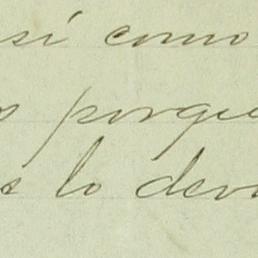 sí como
porque
lo dev